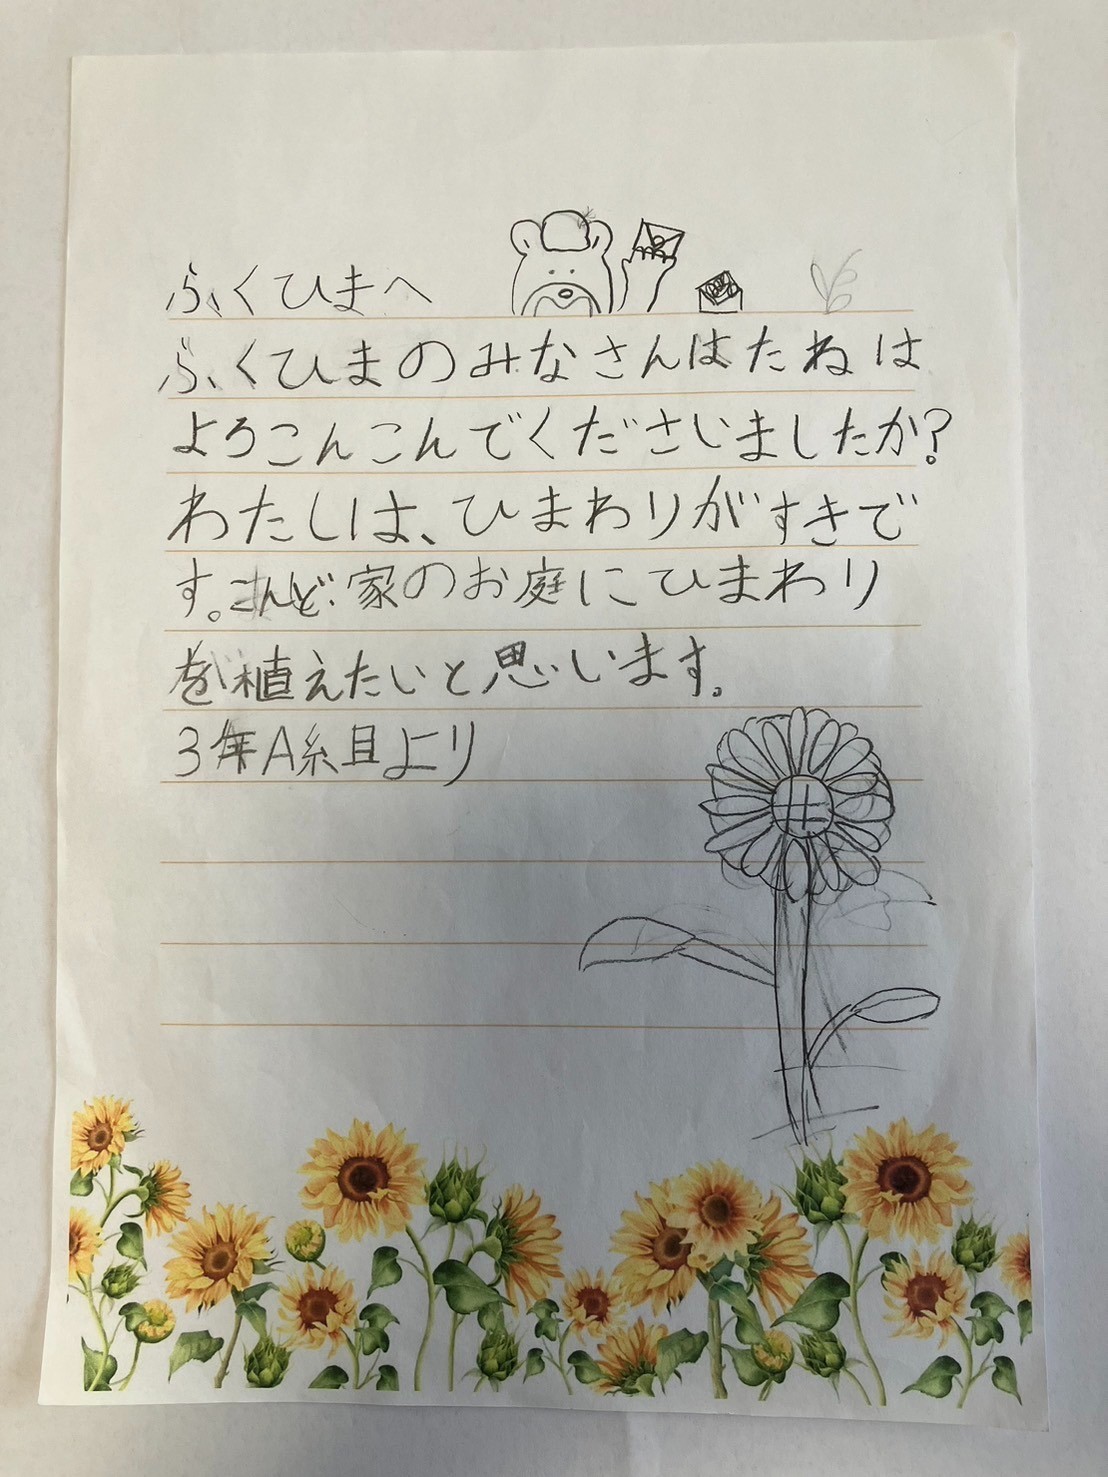 ふくひまへ
ふくひまのみなさんはたねは
よろこんこんでくださいましたか?
わたしは、ひまわりがすきで
す。こんど家のお庭にひまわり
を植えたいと思います。
3年A組より